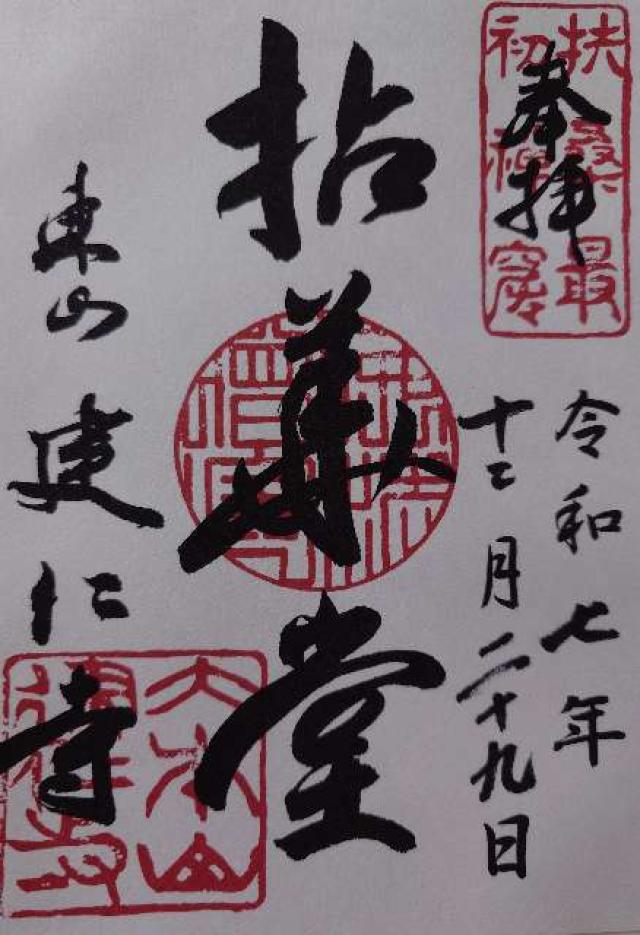 扶桑最
初禅窟
奉拝
令和七年
十二月二十九日
拈華堂
東山
建仁寺
大本山
建仁寺